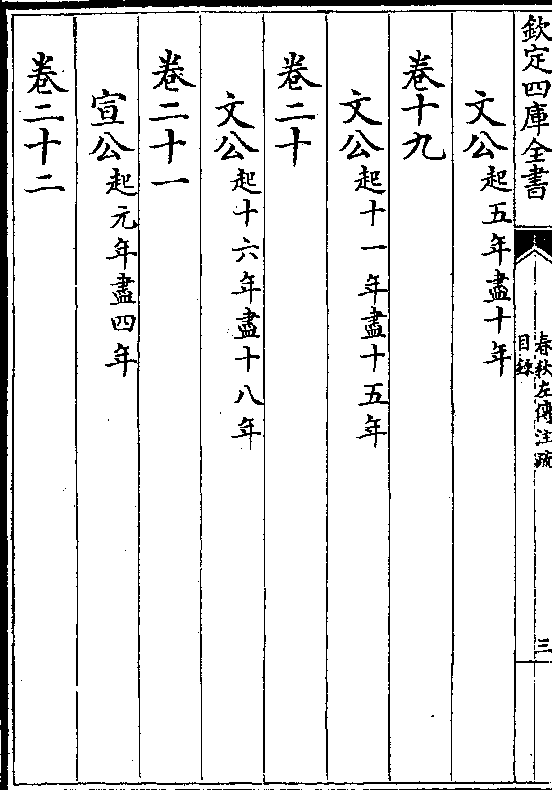 欽定四庫全書
春秋左傳注疏
目錄
三
文公起五年盡十年
卷十九
文公起十一年盡十五年
卷二十
文公起十六年盡十八年
卷二十一
宣公起元年盡四年
卷二十二